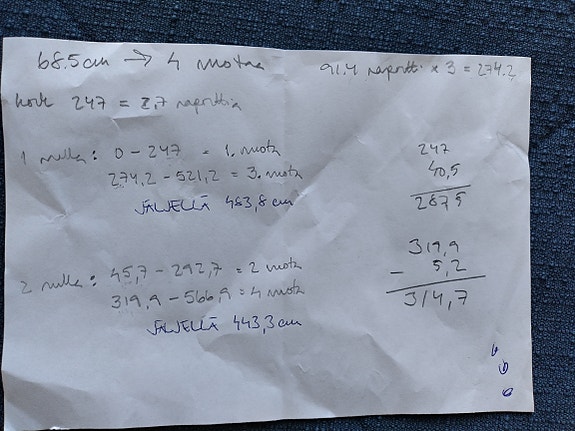 68.5cm → 4 motaa
91.4 raportti x 3 = 274.2
kork 247 = 2,7 raporttia
1 rulla: 0 - 247 = 1. vuota
274,2 - 521,2 = 3. vuota
JÄLJELLÄ 483,8 cm
2 rulla: 45,7 - 292,7 = 2 vuota
319,9 - 566,9 = 4 vuota
JÄLJELLÄ 443,3 cm
247
40,5
287 5
319,9
- 5,2
314,7